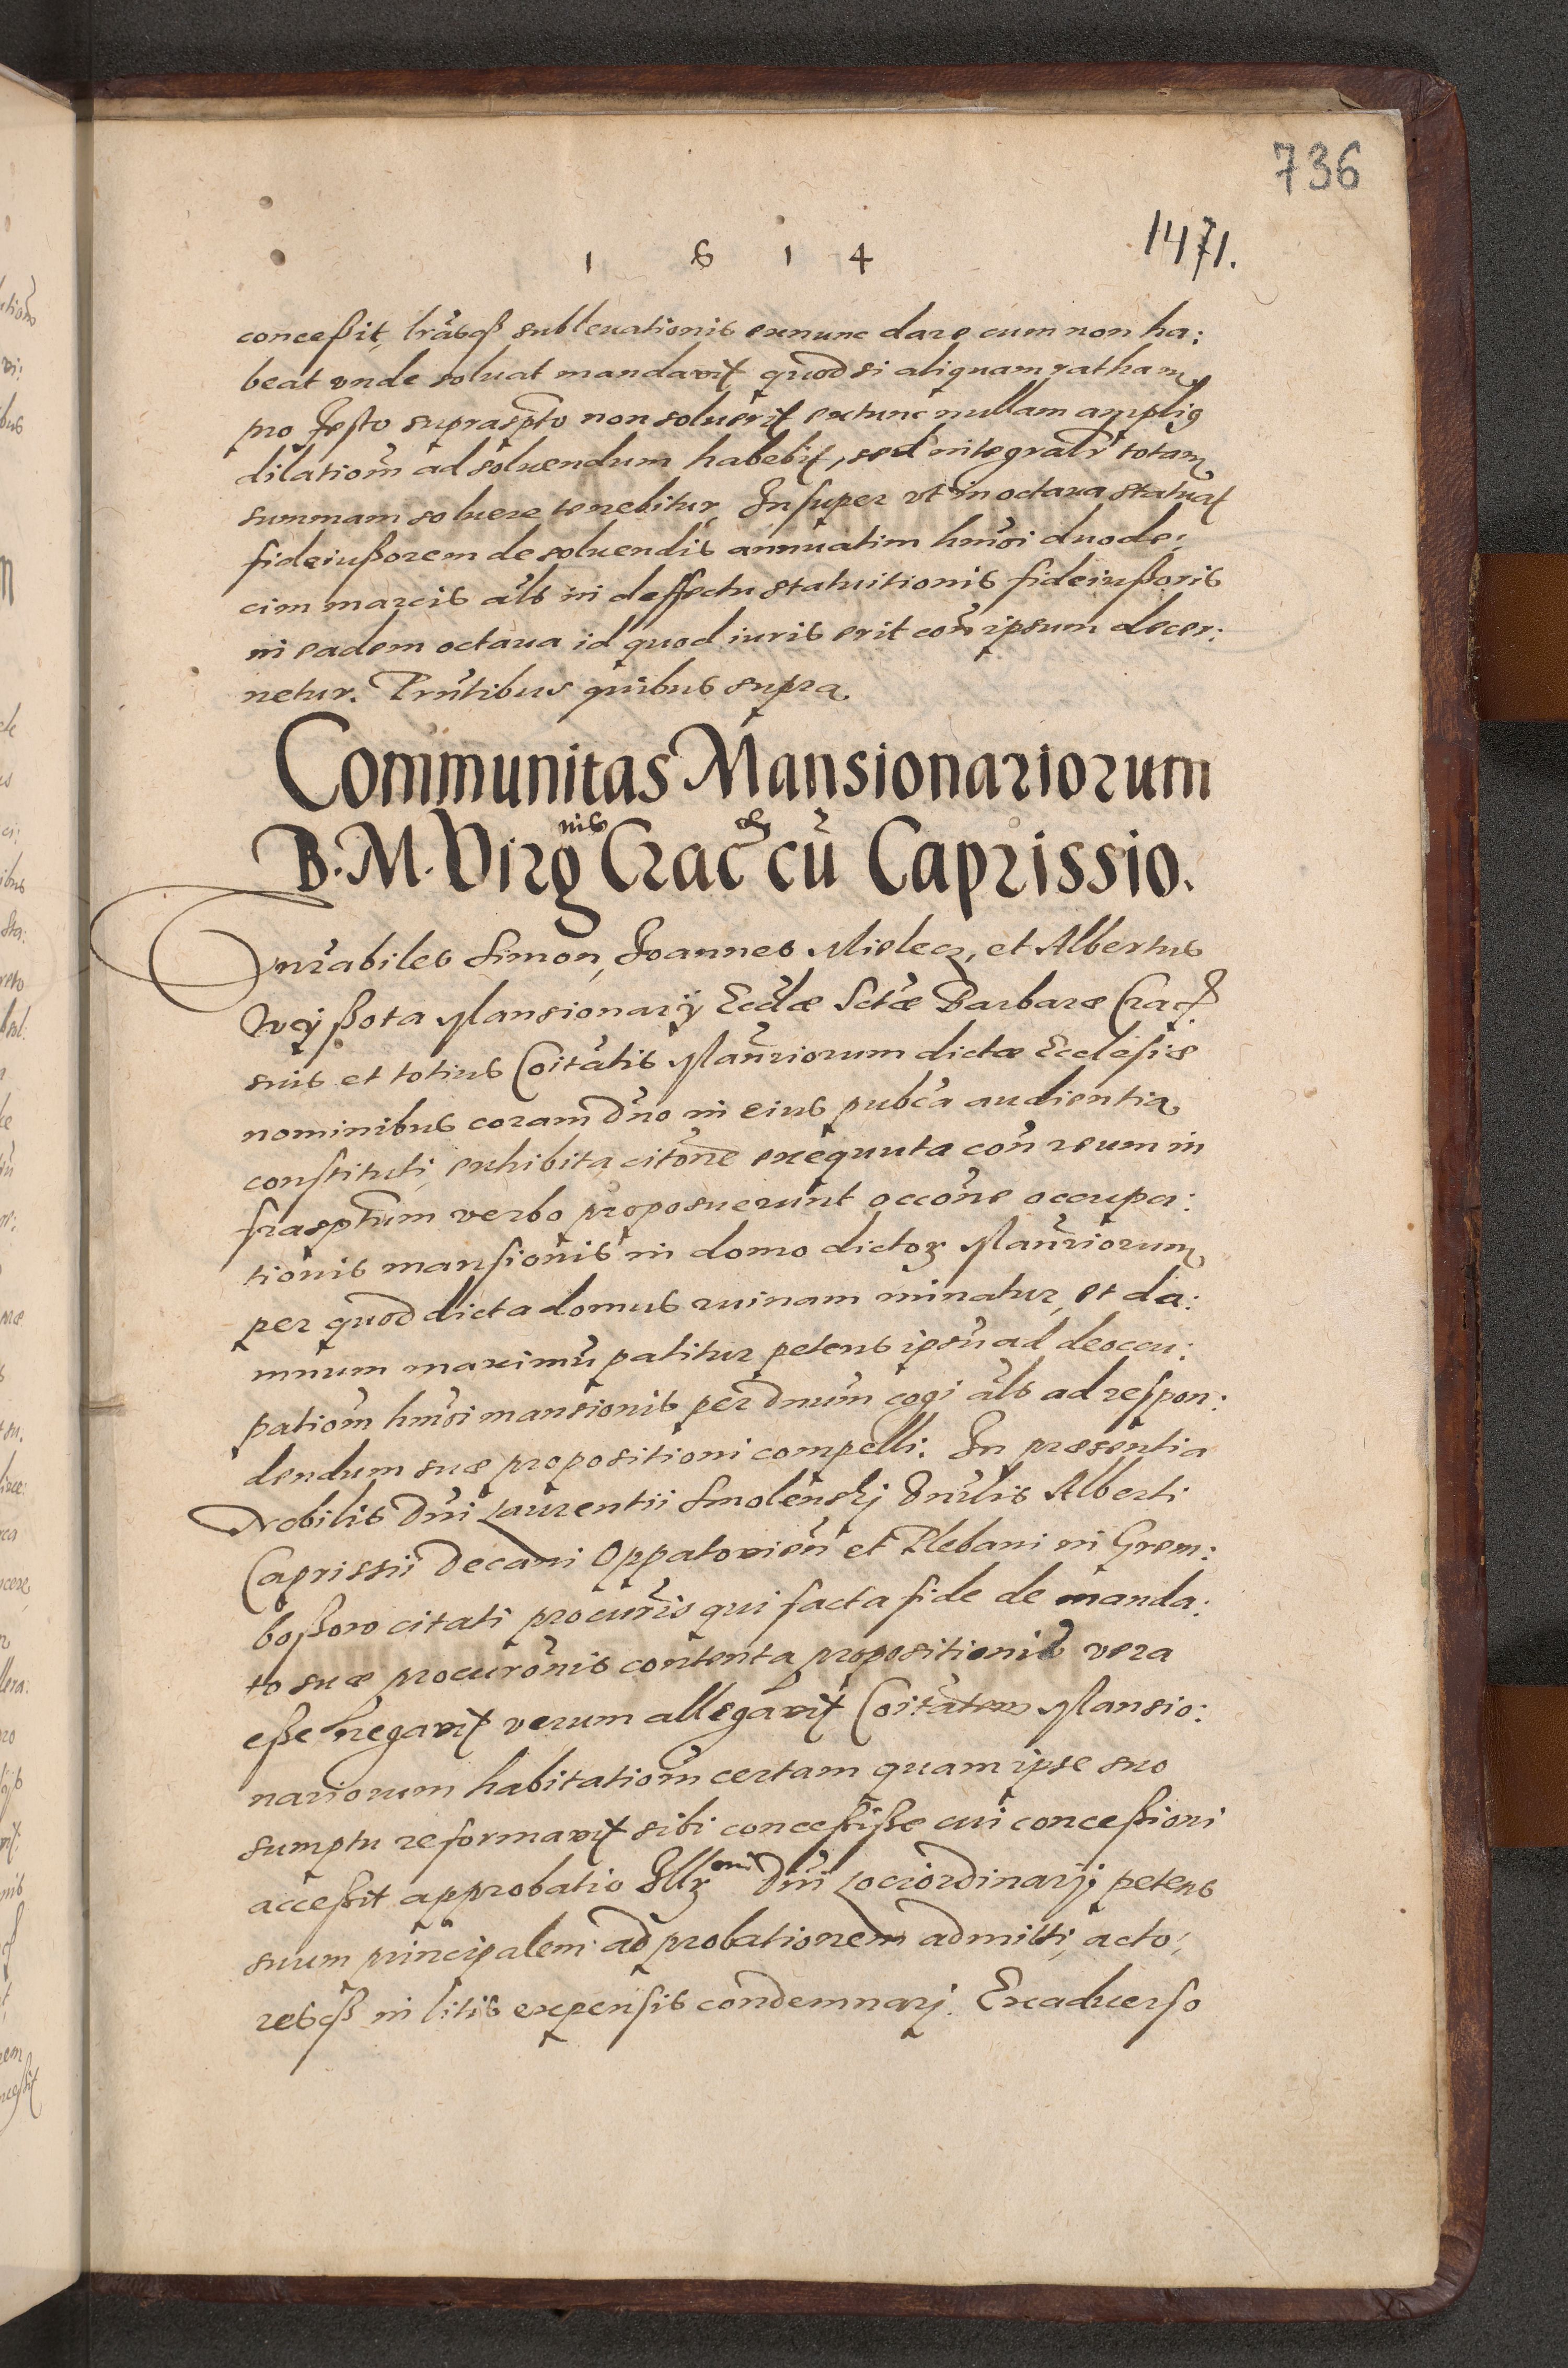 736
1 6 1 4
1471.
conceßit, lrasq3 subleuationis exnunc dare cum non ha:
beat vnde soluat mandavit quod si aliquam ratham
pro festo suprasptо non soluerit extunc nullam amplius
dilationm ad soluendum habebit, sed integralr totam
summam soluere tenebitur, Insuper vt in octaua statuat
fideiußorem de soluendis annuatim hmoi duode:
cim marcis als in deffectu statuitionis fideiußoris
in eadem octaua id quod iuris erit con ipsum decer:
netur. Prntibus quibus supra.
Communitas Mansionariorum
B. M. Virgnis Crac cū Caprissio.
Hnrabiles Simon, Joannes Mielecz, et Albertus
Mansionarij Ecclae Sctae Barbarae Crac
suis et totius Coitatis Manriorum dictae Ecclesiae
nominibus coram Dno in eius pubca audientia
constituti, exhibita citone exequuta con reum in
frasptum verbo proposuerunt occone occupa:
tionis mansionis in domo dictor Manriorum
per quod dicta domus ruinam minatur, et da:
mnum maximū patitur petens ipsū ad deoccu:
pationm hmoi mansionis per Dnum cogi als ad respon:
dendum suae propositioni compelli. In praesentia
Nobilis Dni Laurentii Smolenskj Alberti
Caprissii Decani Oppatovien et Plebani in Grem:
boßow citati procuris qui facta fide de manda:
to suae procuronis contenta propositionis vera
eße negavit verum allegavit Coitatem Mansio:
nariorum habitationm certam quam ipse suo
sumptu reformavit sibi conceßiße cui conceßioni
acceßit approbatio Illrmi Dni Lociordinarij petens
suum principalem ad probationem admitti, acto:
resq3 in litis expensis condemnarj. Exaduerso